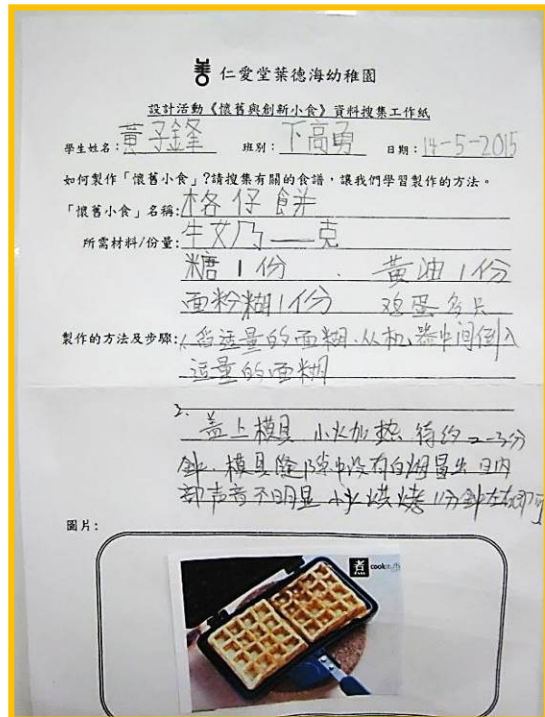 仁愛堂葉德海幼稚園
設計活動《懷舊與創新小食》資料搜集工作紙
學生姓名：黃子鋒 班別：下高勇 日期：14-5-2015
如何製作「懷舊小食」？請搜集有關的食譜，讓我們學習製作的方法。
「懷舊小食」名稱：格仔餅
所需材料/份量：牛奶——克
糖1份 . 黃油1份
面粉糊1份 鸡蛋
製作的方法及步驟：1. 适量的面糊.从机器中间倒入
适量的面糊
2.
盖上模具 小火加热 待约2-3分
鈡.模具隙中没有白烟冒出 且内
部声音不明显 小火烘烤1分鈡左右即可
圖片：
煮 cook